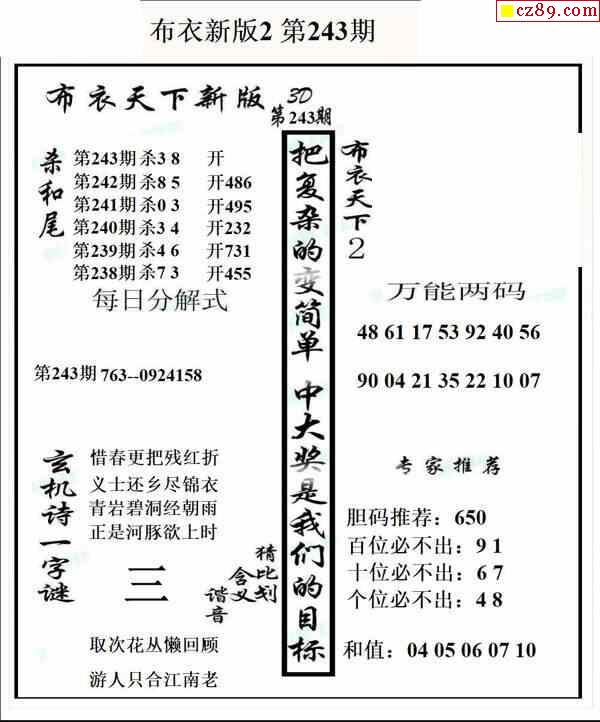 cz89.com
布衣新版2 第243期
布衣天下新版 3D
第243期
杀和尾
第243期杀3 8 开
第242期杀8 5 开486
第241期杀0 3 开495
第240期杀3 4 开232
第239期杀4 6 开731
第238期杀7 3 开455
每日分解式
第243期763--0924158
玄机诗一字谜
惜春更把残红折
义士还乡尽锦衣
青岩碧洞经朝雨
正是河豚欲上时
三
猜比划
含义
谐音
取次花丛懒回顾
游人只合江南老
把复杂的变简单 中大奖是我们的目标
布衣天下2
万能两码
48 61 17 53 92 40 56
90 04 21 35 22 10 07
专家推荐
胆码推荐：650
百位必不出：9 1
十位必不出：6 7
个位必不出：4 8
和值：04 05 06 07 10